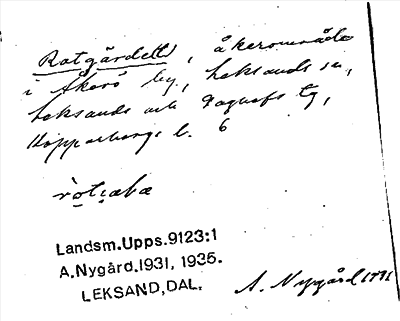 Rotgärdett, åkerområde
i Åkerö by, Leksands sn,
Leksands och Gagnefs tg,
Kopparbergs l. 6
Landsm.Upps.9123:1
A.Nygård.1931, 1935.
LEKSAND, DAL.
A. Nygård 1931